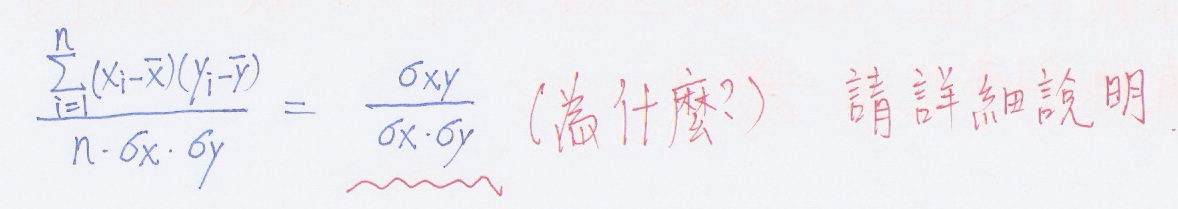 $\frac{\sum_{i=1}^{n}(x_i-\bar{x})(y_i-\bar{y})}{n\cdot\sigma x\cdot\sigma y} = \frac{\sigma xy}{\sigma x\cdot\sigma y}$ (為什麼?) 請詳細說明.